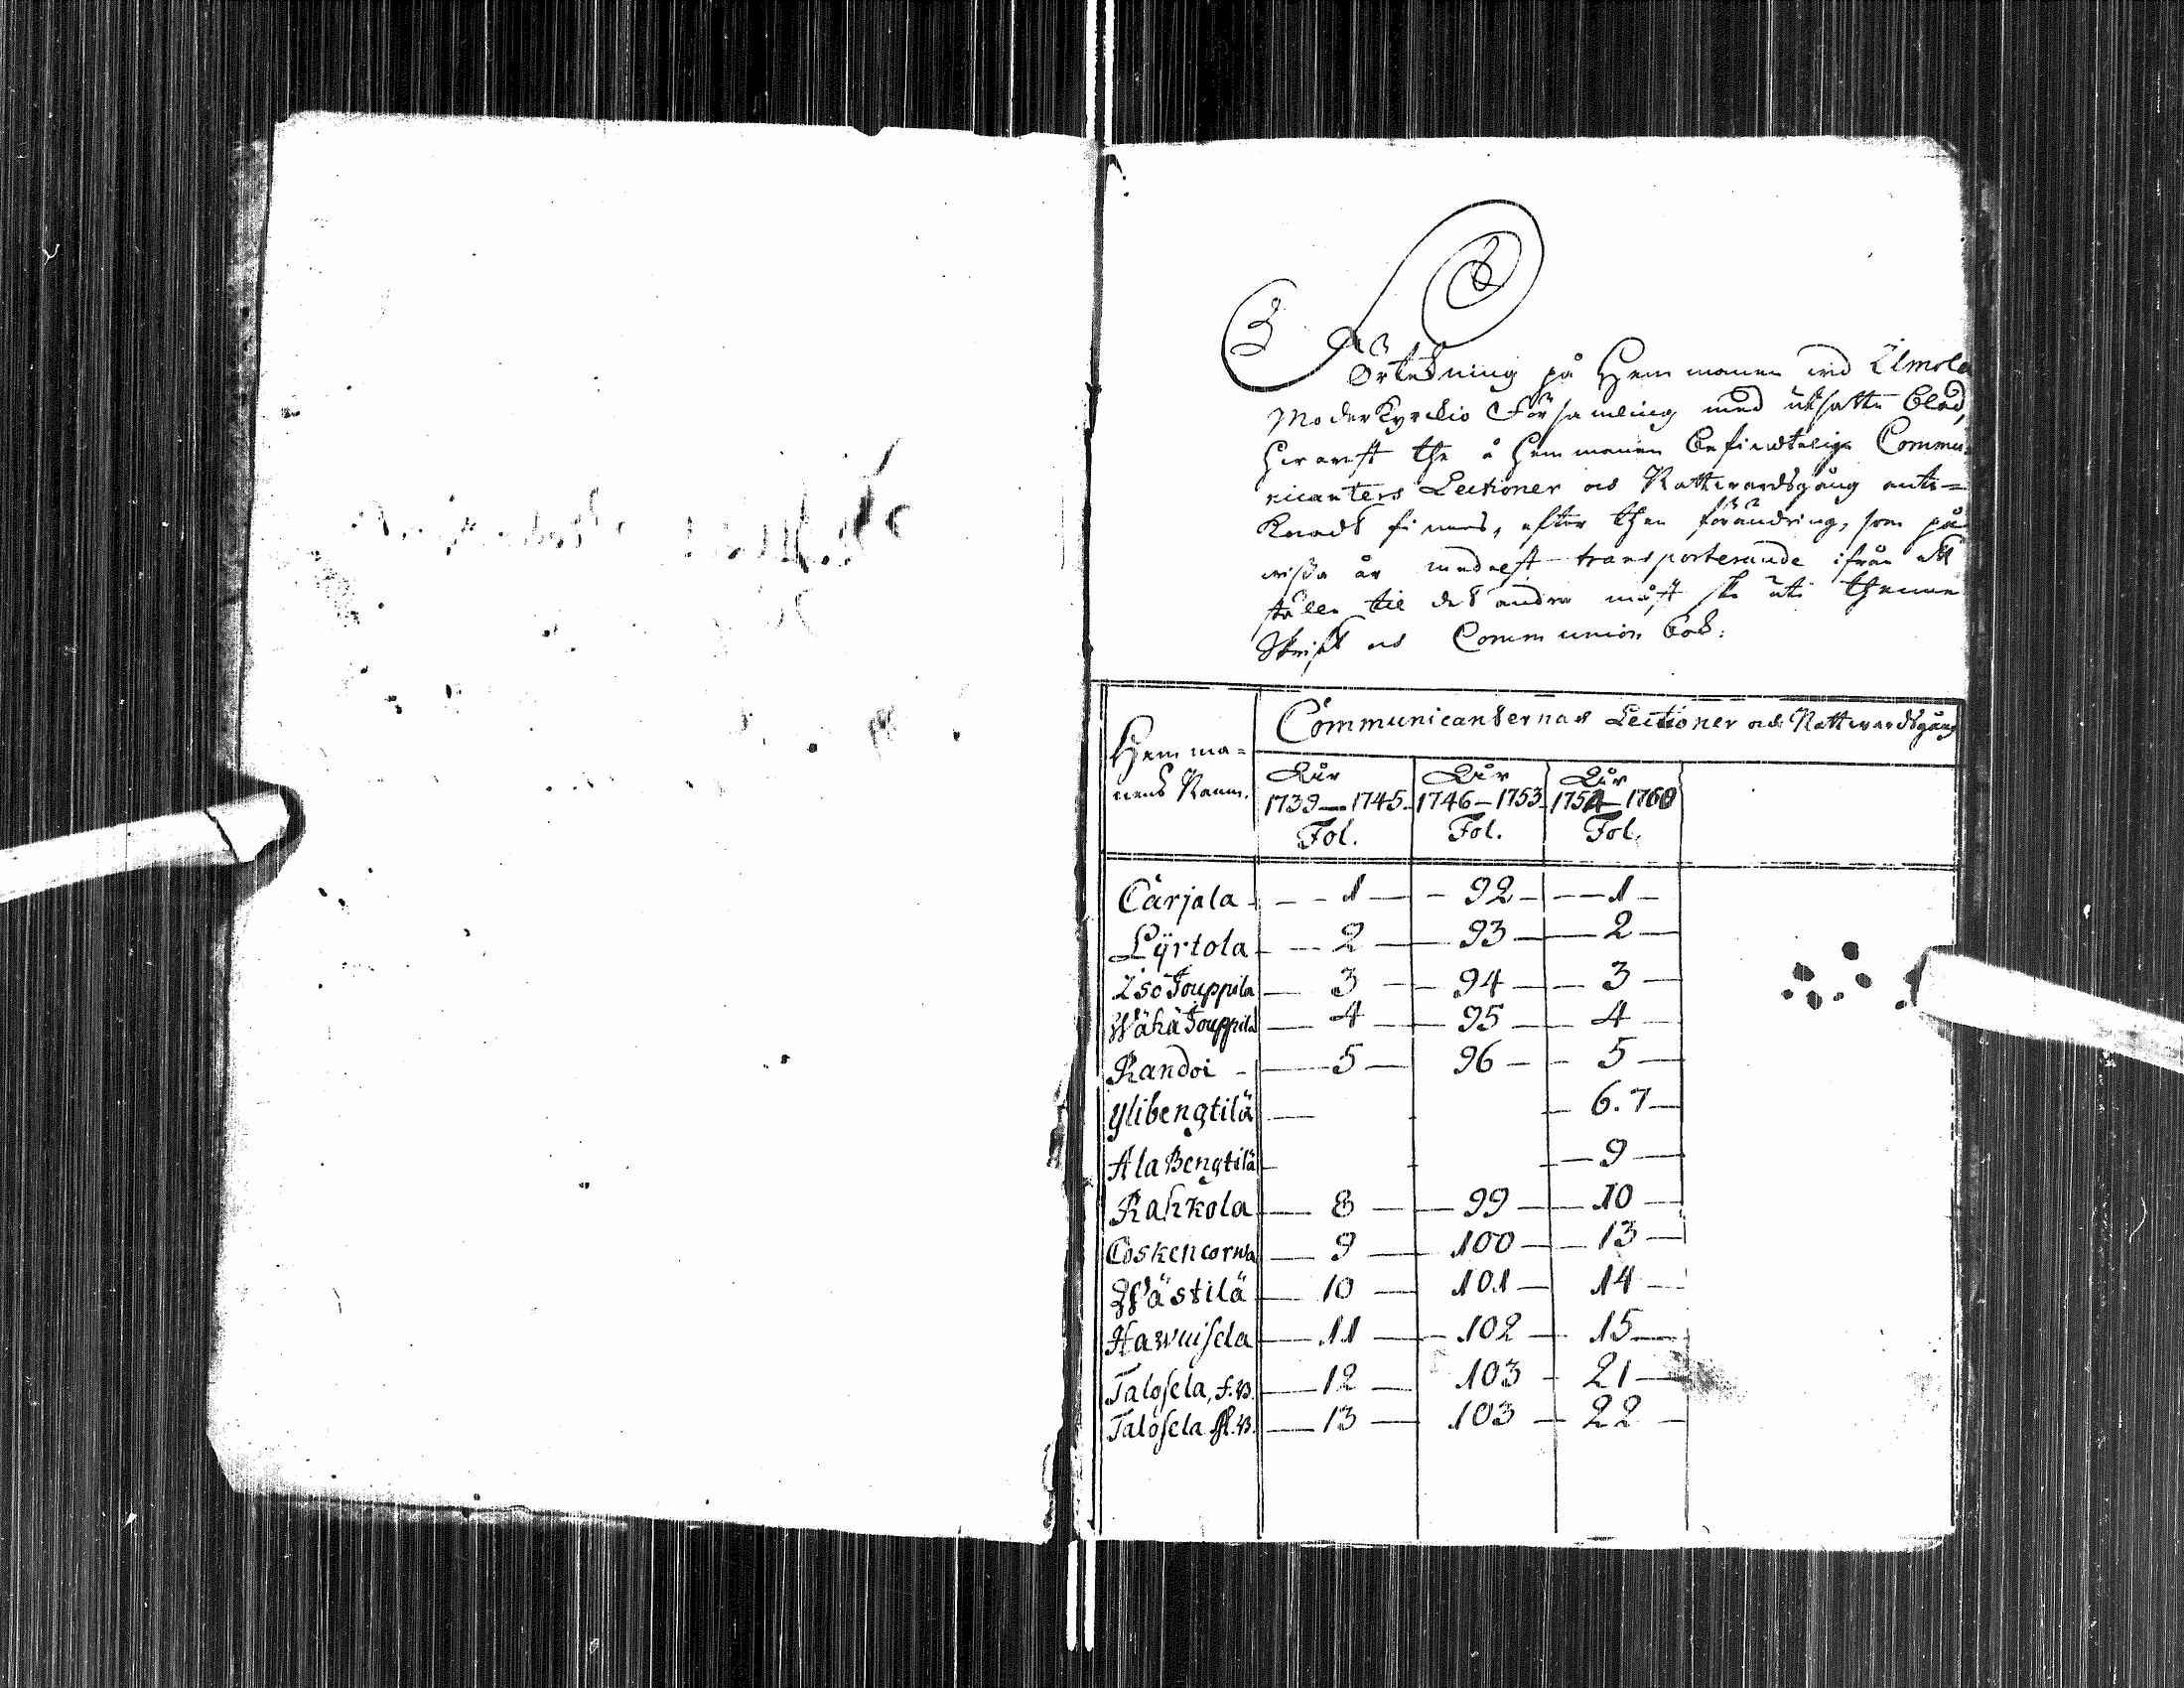 Förteckning på Hemmanen wid Ilmola
Moderkyrckio Församling med utsatte blad,
hwarest the å Hemmanen befinteliga Commu-
nicanters Lectioner och Nattwardsgång ante=
knadt finnes, efter then förändring, som på
wissa år medelst transporterande ifrån ett
ställe til det andra måst ske uti thenna
Skrift och Communion bok:
Communicanternas Lectioner och Nattwardsgång
Hemma=
nens Namn.
Åår Åår Åår
1739—1745. 1746—1753. 1754—1760
Fol. Fol. Fol.
Carjala — 1 — 92 — 1 —
Lÿrtola — 2 — 93 — 2 —
Iso Jouppila — 3 — 94 — 3 —
Wähä Jouppila — 4 — 95 — 4 —
Randoi — 5 — 96 — 5 —
Ylibengtilä — 6. 7 —
Ala Bengtilä — 9 —
Rahkola — 8 — 99 — 10 —
Coskencorwa — 9 — 100 — 13 —
Wästilä — 10 — 101 — 14 —
Hawuisela — 11 — 102 — 15 —
Talosela, f.B. — 12 — 103 — 21 —
Talosela — 13 — 103 — 22 —